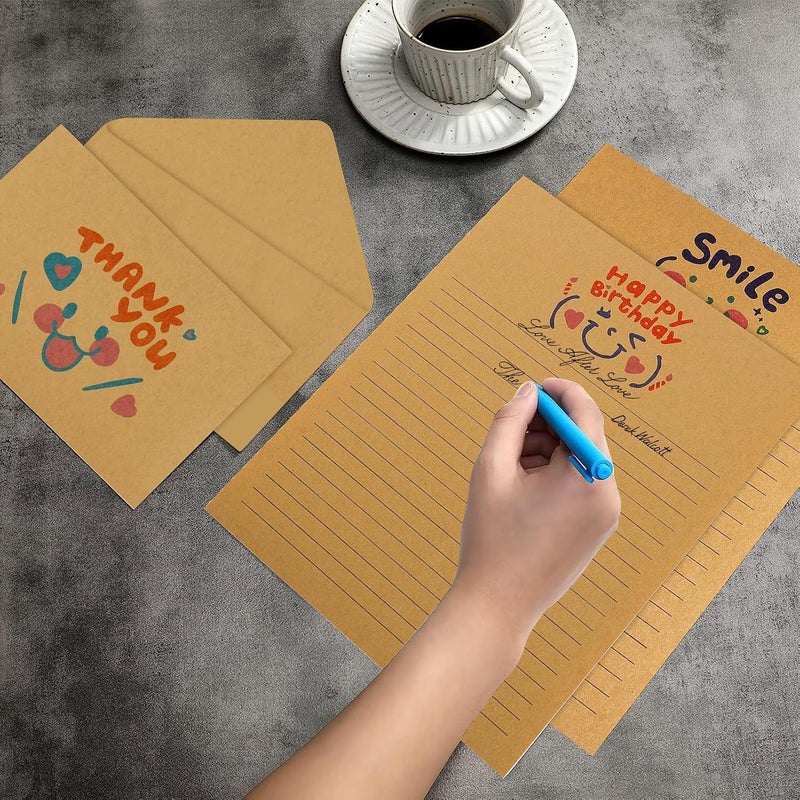 THANK
YOU
Smile
Happy
Birthday
Love After Love
Derek Walcott
The